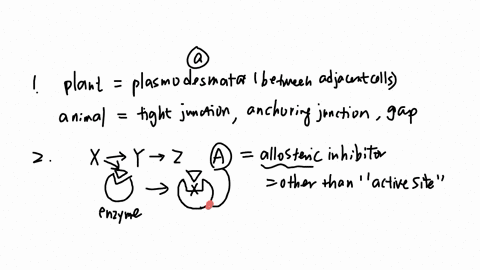 a
1. plant = plasmodesmata (between adjacent cells)
animal = tight junction, anchoring junction, gap
2. X → Y → Z A = allosteric inhibitor
= other than "active site"
X
enzyme